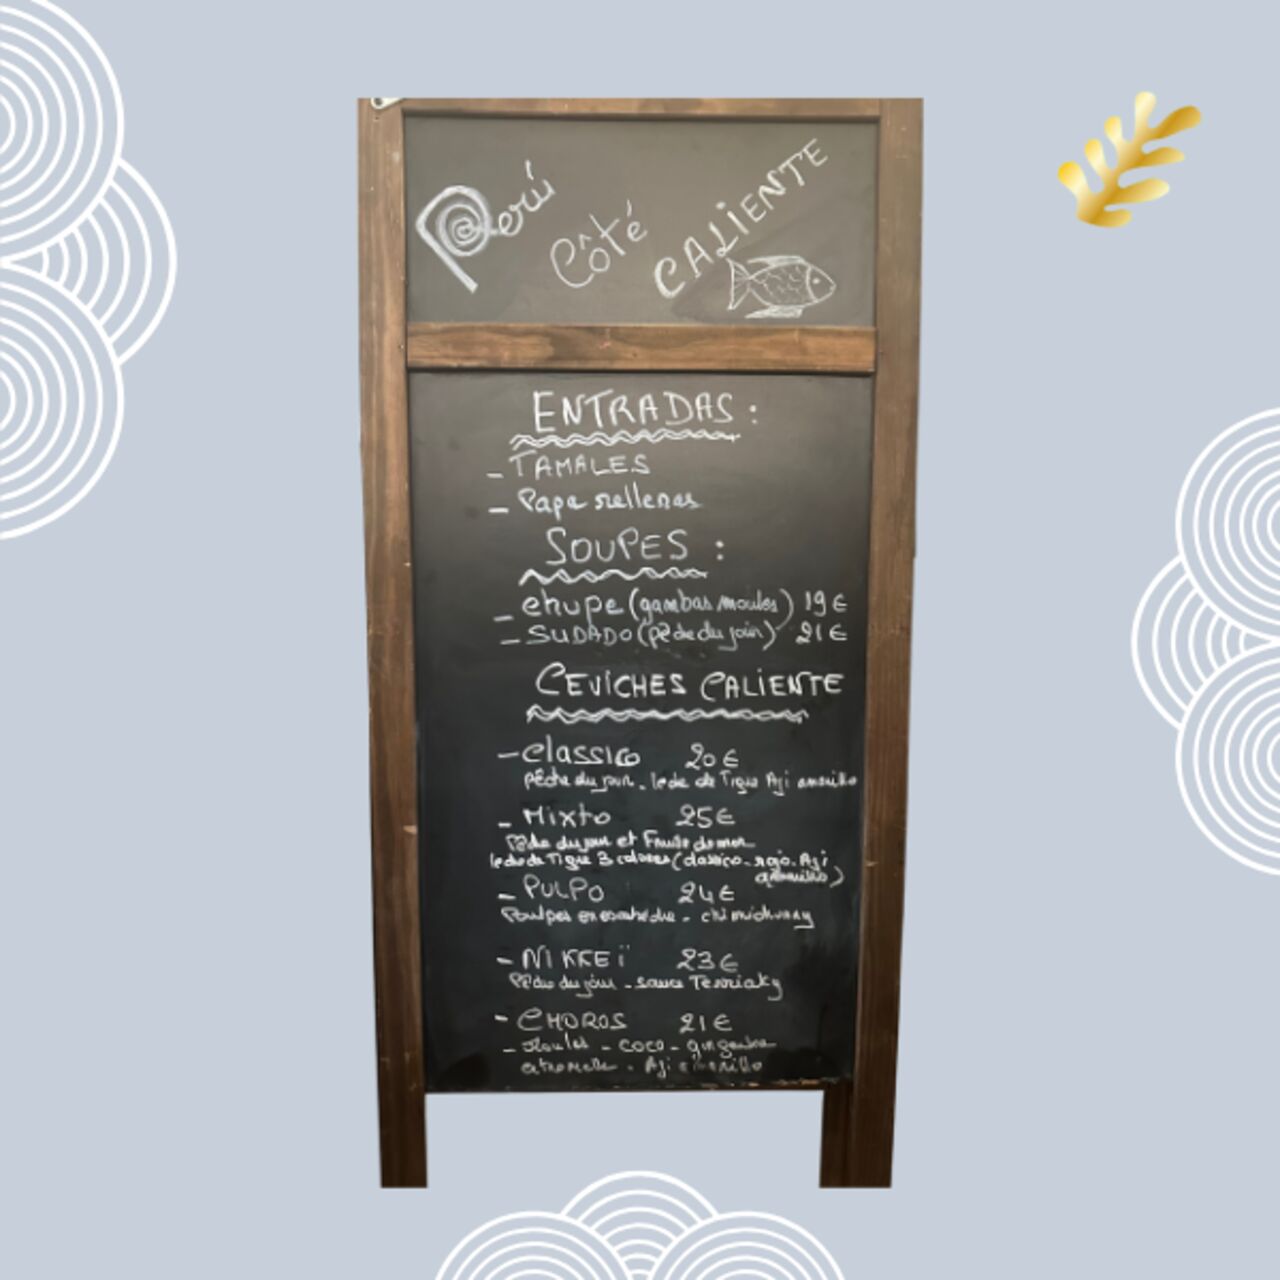 Perú
Côté
CALIENTE
ENTRADAS :
- TAMALES
- Papa rellenas
SOUPES :
- chupe (gambas moules) 19€
- SUDADO (pêche du jour) 21€
CEVICHES CALIENTE
- classico 20€
pêche du jour - leche de Tigre Aji amarillo
- Mixto 25€
Pêche du jour et Fruits de mer
leche de Tigre 3 colores (classico - rojo - Aji
amarillo)
- PULPO 24€
Poulpes en escabèche -
- NIKKEï 23€
Pêche du jour - sauce Terriaky
- CHOROS 21€
- Moules - coco - gingembre
- Aji amarillo